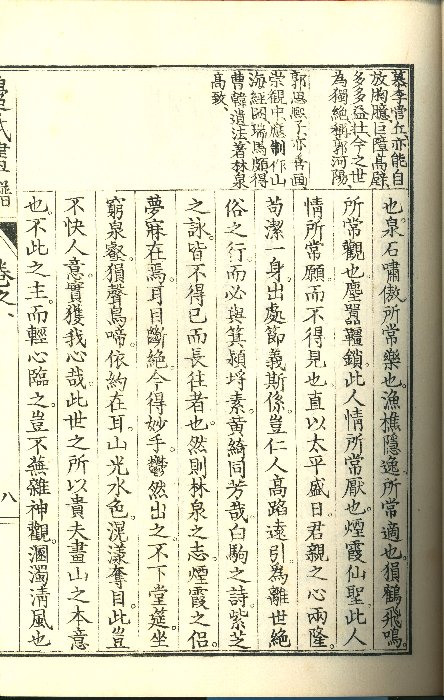 慕李營丘亦能自
放胸臆巨障高壁
多多益壮今之世
為獨絶稱郭河陽
郭思熙子亦善画
崇観中應制作山
海經圖瑞馬頗得
曹韓遺法著林泉
高致
也泉石嘯傲所常樂也漁樵隱逸所常適也猿鶴飛鳴
所常觀也塵囂韁鎖此人情所常厭也煙霞仙聖此人
情所常願而不得見也直以太平盛日君親之心兩隆
苟潔一身出處節義斯係豈仁人高蹈遠引為離世絶
俗之行而必與箕潁埒素黄綺同芳哉白駒之詩紫芝
之詠皆不得已而長往者也然則林泉之志煙霞之侣
夢寐在焉耳目斷絶今得妙手鬱然出之不下堂筵坐
窮泉壑猿聲鳥啼依約在耳山光水色滉漾奪目此豈
不快人意實獲我心哉此世之所以貴夫畫山之本意
也不此之主而輕心臨之豈不蕪雜神觀溷濁清風也
氏畫譜
卷之
八